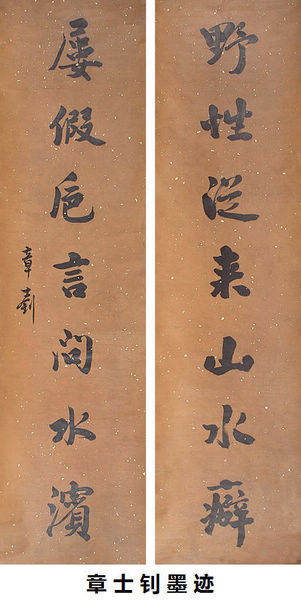 野性從来山水癖
屢假卮言問水濱
章釗
章士钊墨迹